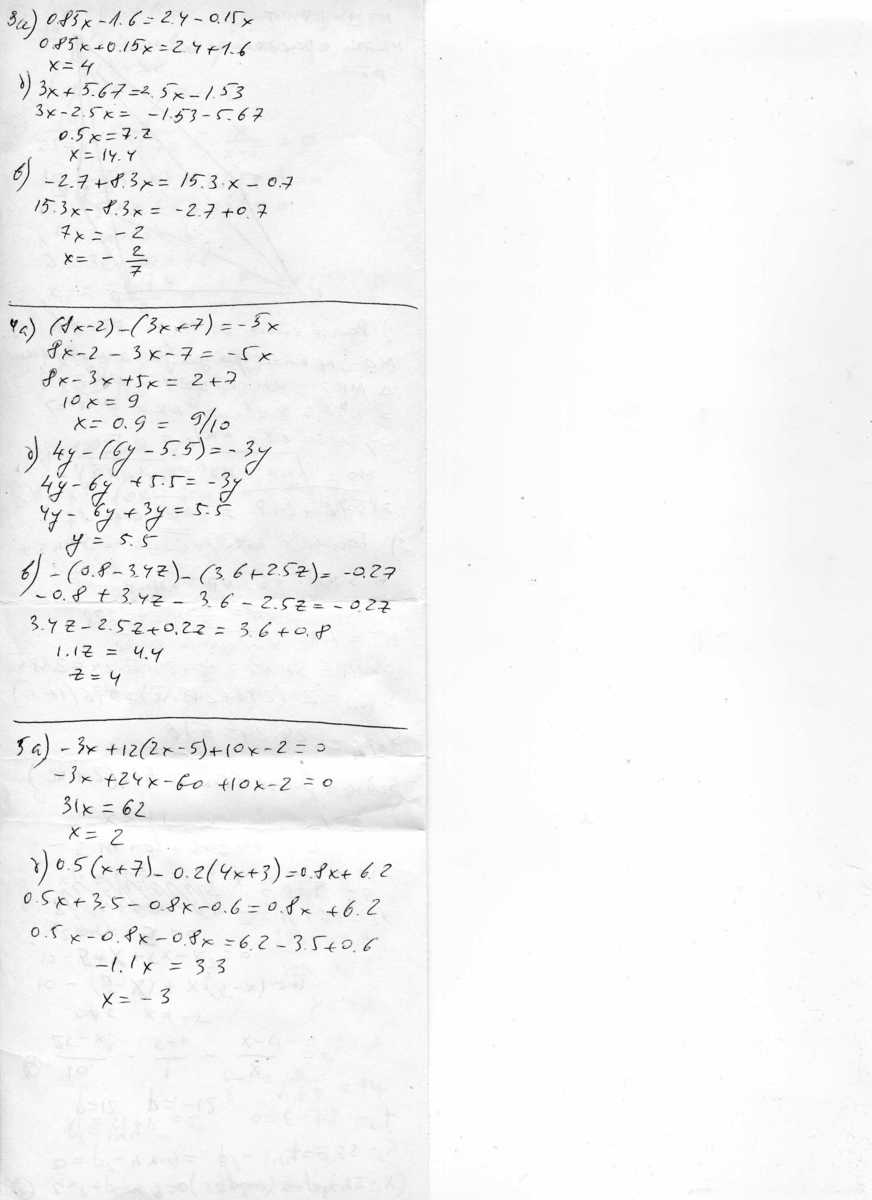 3а) 0.85x-1.6=2.4-0.15x
0.85x+0.15x=2.4+1.6
x=4
б) 3x+5.67=2.5x-1.53
3x-2.5x= -1.53-5.67
0.5x=7.2
x=14.4
в) -2.7+8.3x= 15.3·x-0.7
15.3x-8.3x= -2.7+0.7
7x= -2
x= - 2/7
4а) (8x-2)-(3x+7)=-5x
8x-2-3x-7=-5x
8x-3x+5x= 2+7
10x=9
x=0.9= 9/10
б) 4y-(6y-5.5)=-3y
4y-6y+5.5=-3y
4y-6y+3y=5.5
y= 5.5
в) -(0.8-3.4z)-(3.6+2.5z)= -0.2z
-0.8+3.4z-3.6-2.5z=-0.2z
3.4z-2.5z+0.2z= 3.6+0.8
1.1z = 4.4
z=4
5а) -3x+12(2x-5)+10x-2=0
-3x+24x-60+10x-2=0
31x=62
x=2
б) 0.5(x+7)-0.2(4x+3)=0.8x+6.2
0.5x+3.5-0.8x-0.6=0.8x+6.2
0.5x-0.8x-0.8x=6.2-3.5+0.6
-1.1x = 3.3
x=-3